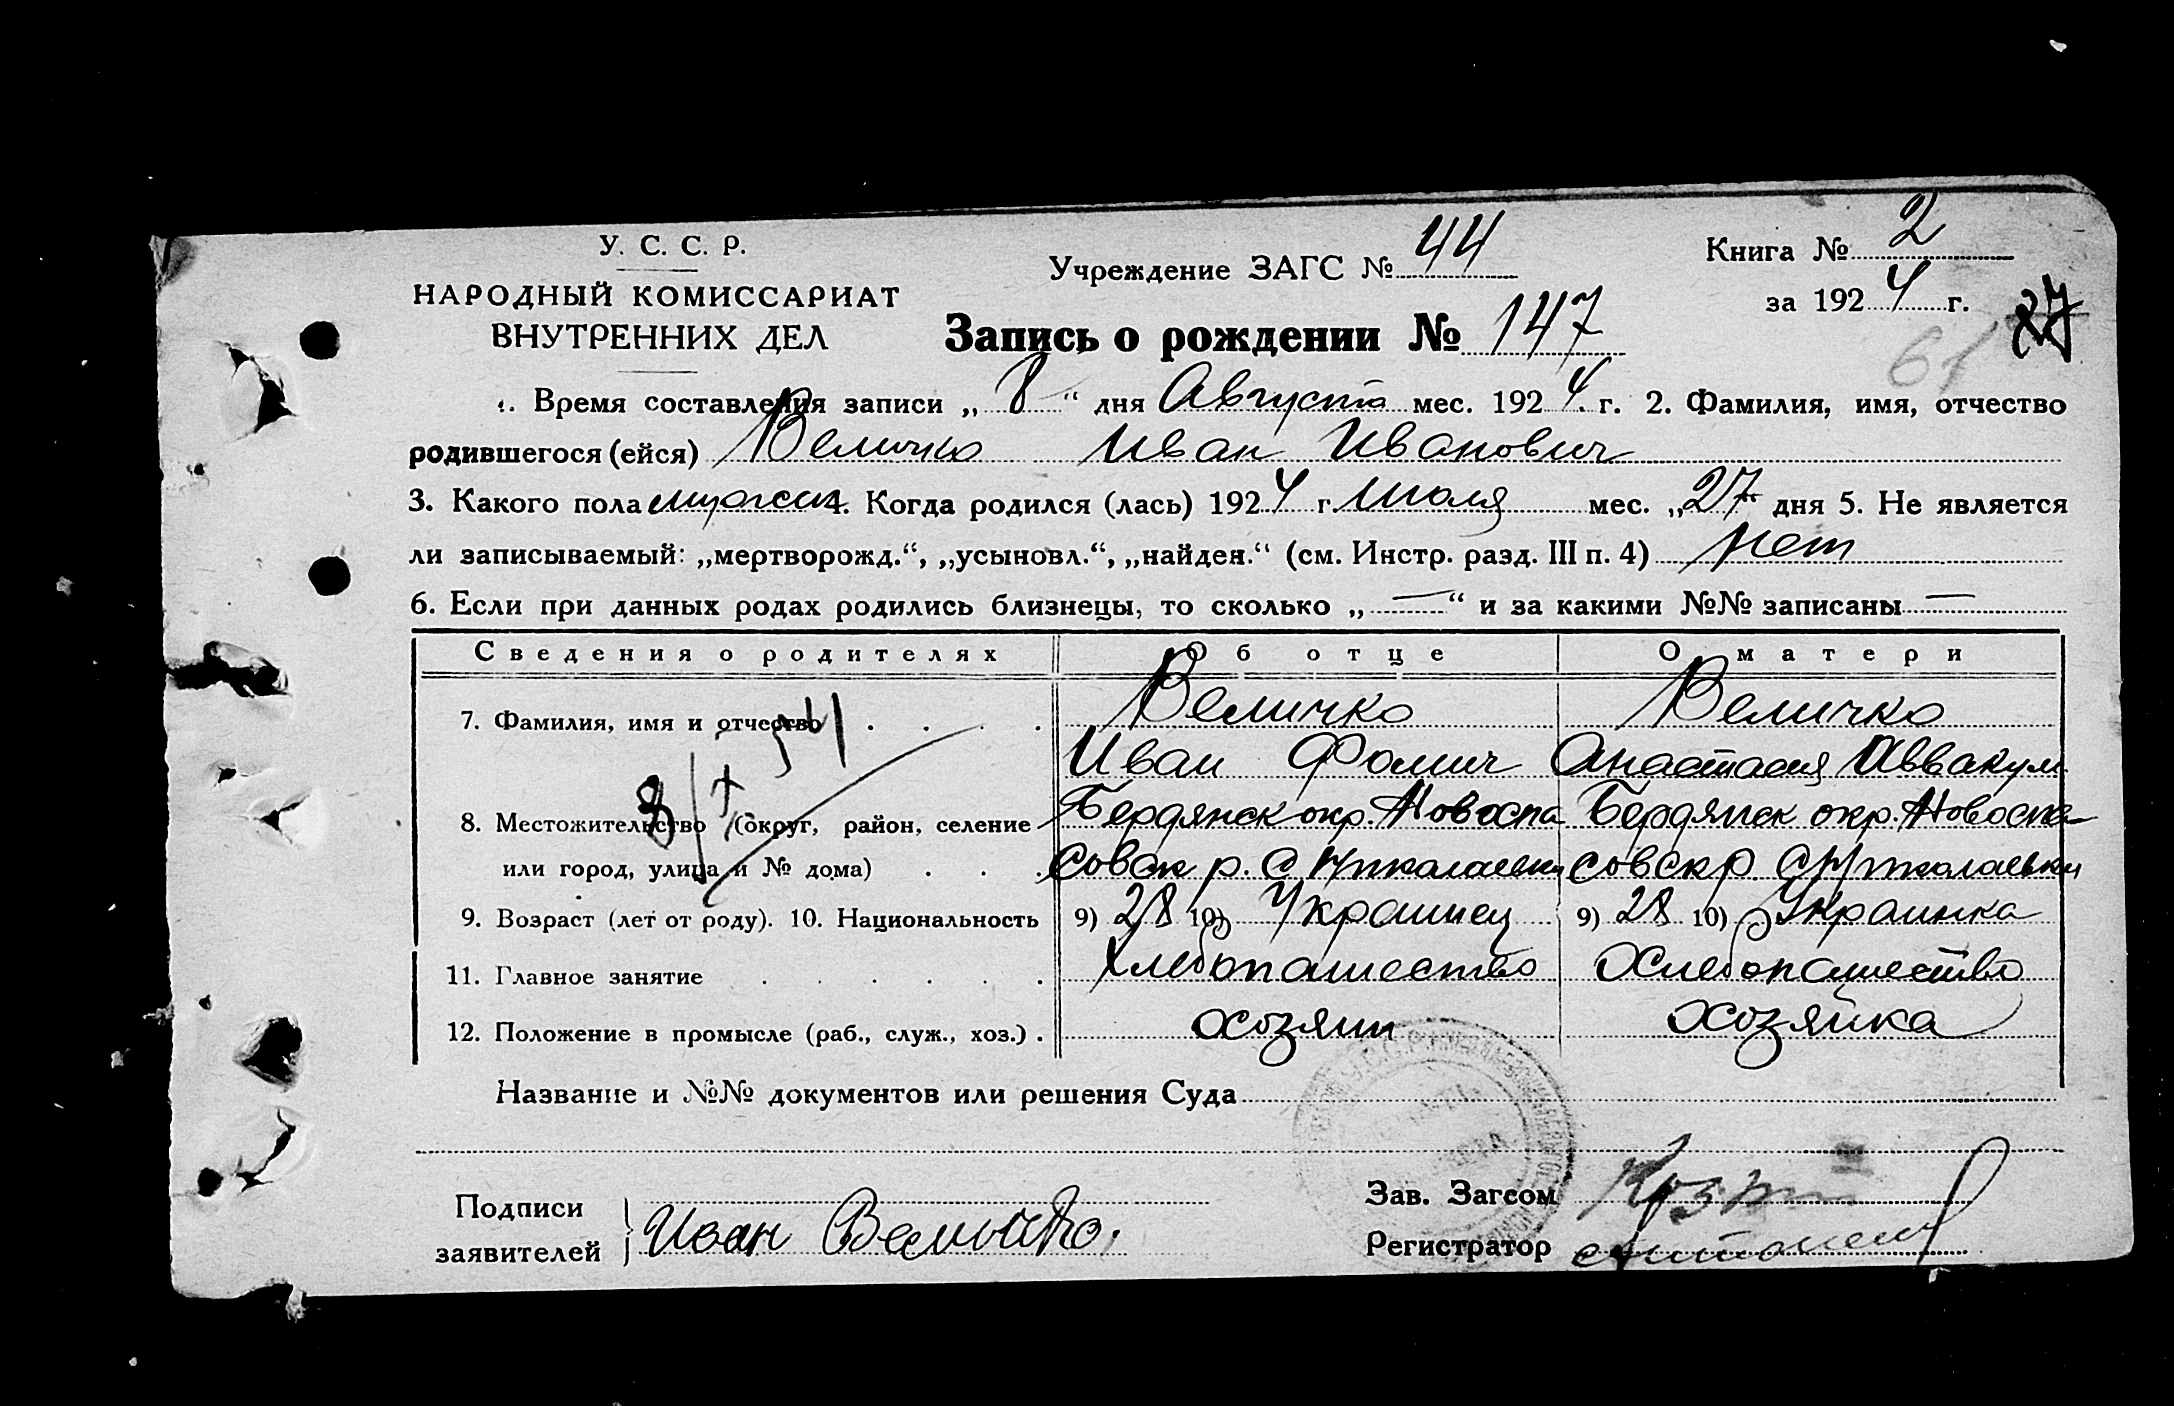 У. С. С. Р.
НАРОДНЫЙ КОМИССАРИАТ
ВНУТРЕННИХ ДЕЛ
Учреждение ЗАГС № 44
Книга № 2
за 1924 г.
27
61
Запись о рождении № 147
1. Время составления записи „8“ дня Августа мес. 1924 г. 2. Фамилия, имя, отчество
родившегося (ейся) Величко Иван Иванович
3. Какого пола мужск 4. Когда родился (лась) 1924 г. Июля мес. „27“ дня 5. Не является
ли записываемый: „мертворожд.“, „усыновл.“, „найден.“ (см. Инстр. разд. III п. 4) Нет
6. Если при данных родах родились близнецы, то сколько „—“ и за какими №№ записаны —
Сведения о родителях Об отце О матери
7. Фамилия, имя и отчество . . . . Величко Величко
Иван Фомич Анастасия Аввакум
8. Местожительство (округ, район, селение Бердянск окр. Новоспа Бердянск окр. Новоспа-
или город, улица и № дома) . . . совск р. С Николаевки совск р. С Николаевки
9. Возраст (лет от роду). 10. Национальность 9) 28 10) Украинец 9) 28 10) Украинка
11. Главное занятие . . . . . . Хлебопашество Хлебопашество
12. Положение в промысле (раб., служ., хоз.) . хозяин хозяйка
Название и №№ документов или решения Суда
Подписи
заявителей
Иван Величко.
Зав. Загсом
Регистратор